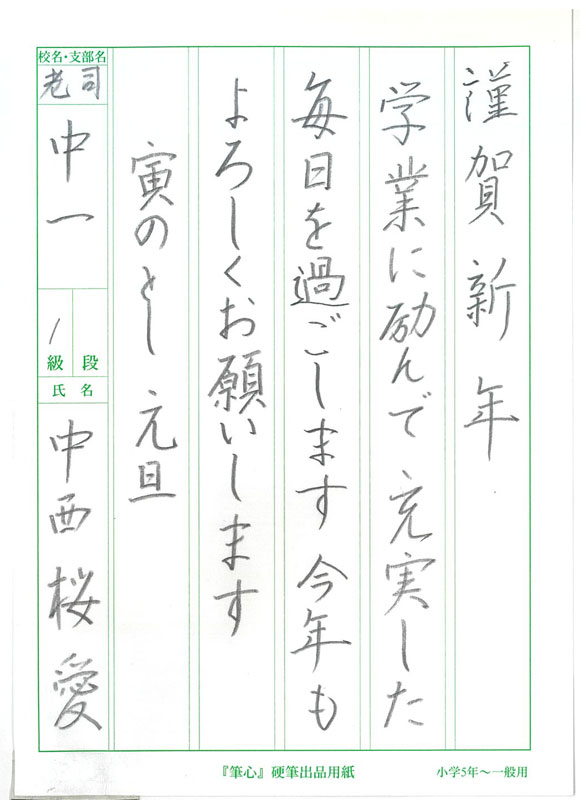 謹賀新年
学業に励んで充実した
毎日を過ごします今年も
よろしくお願いします
寅のとし元旦
校名・支部名
老司
中一
1
級 段
氏 名
中西桜愛
『筆心』硬筆出品用紙
小学5年〜一般用